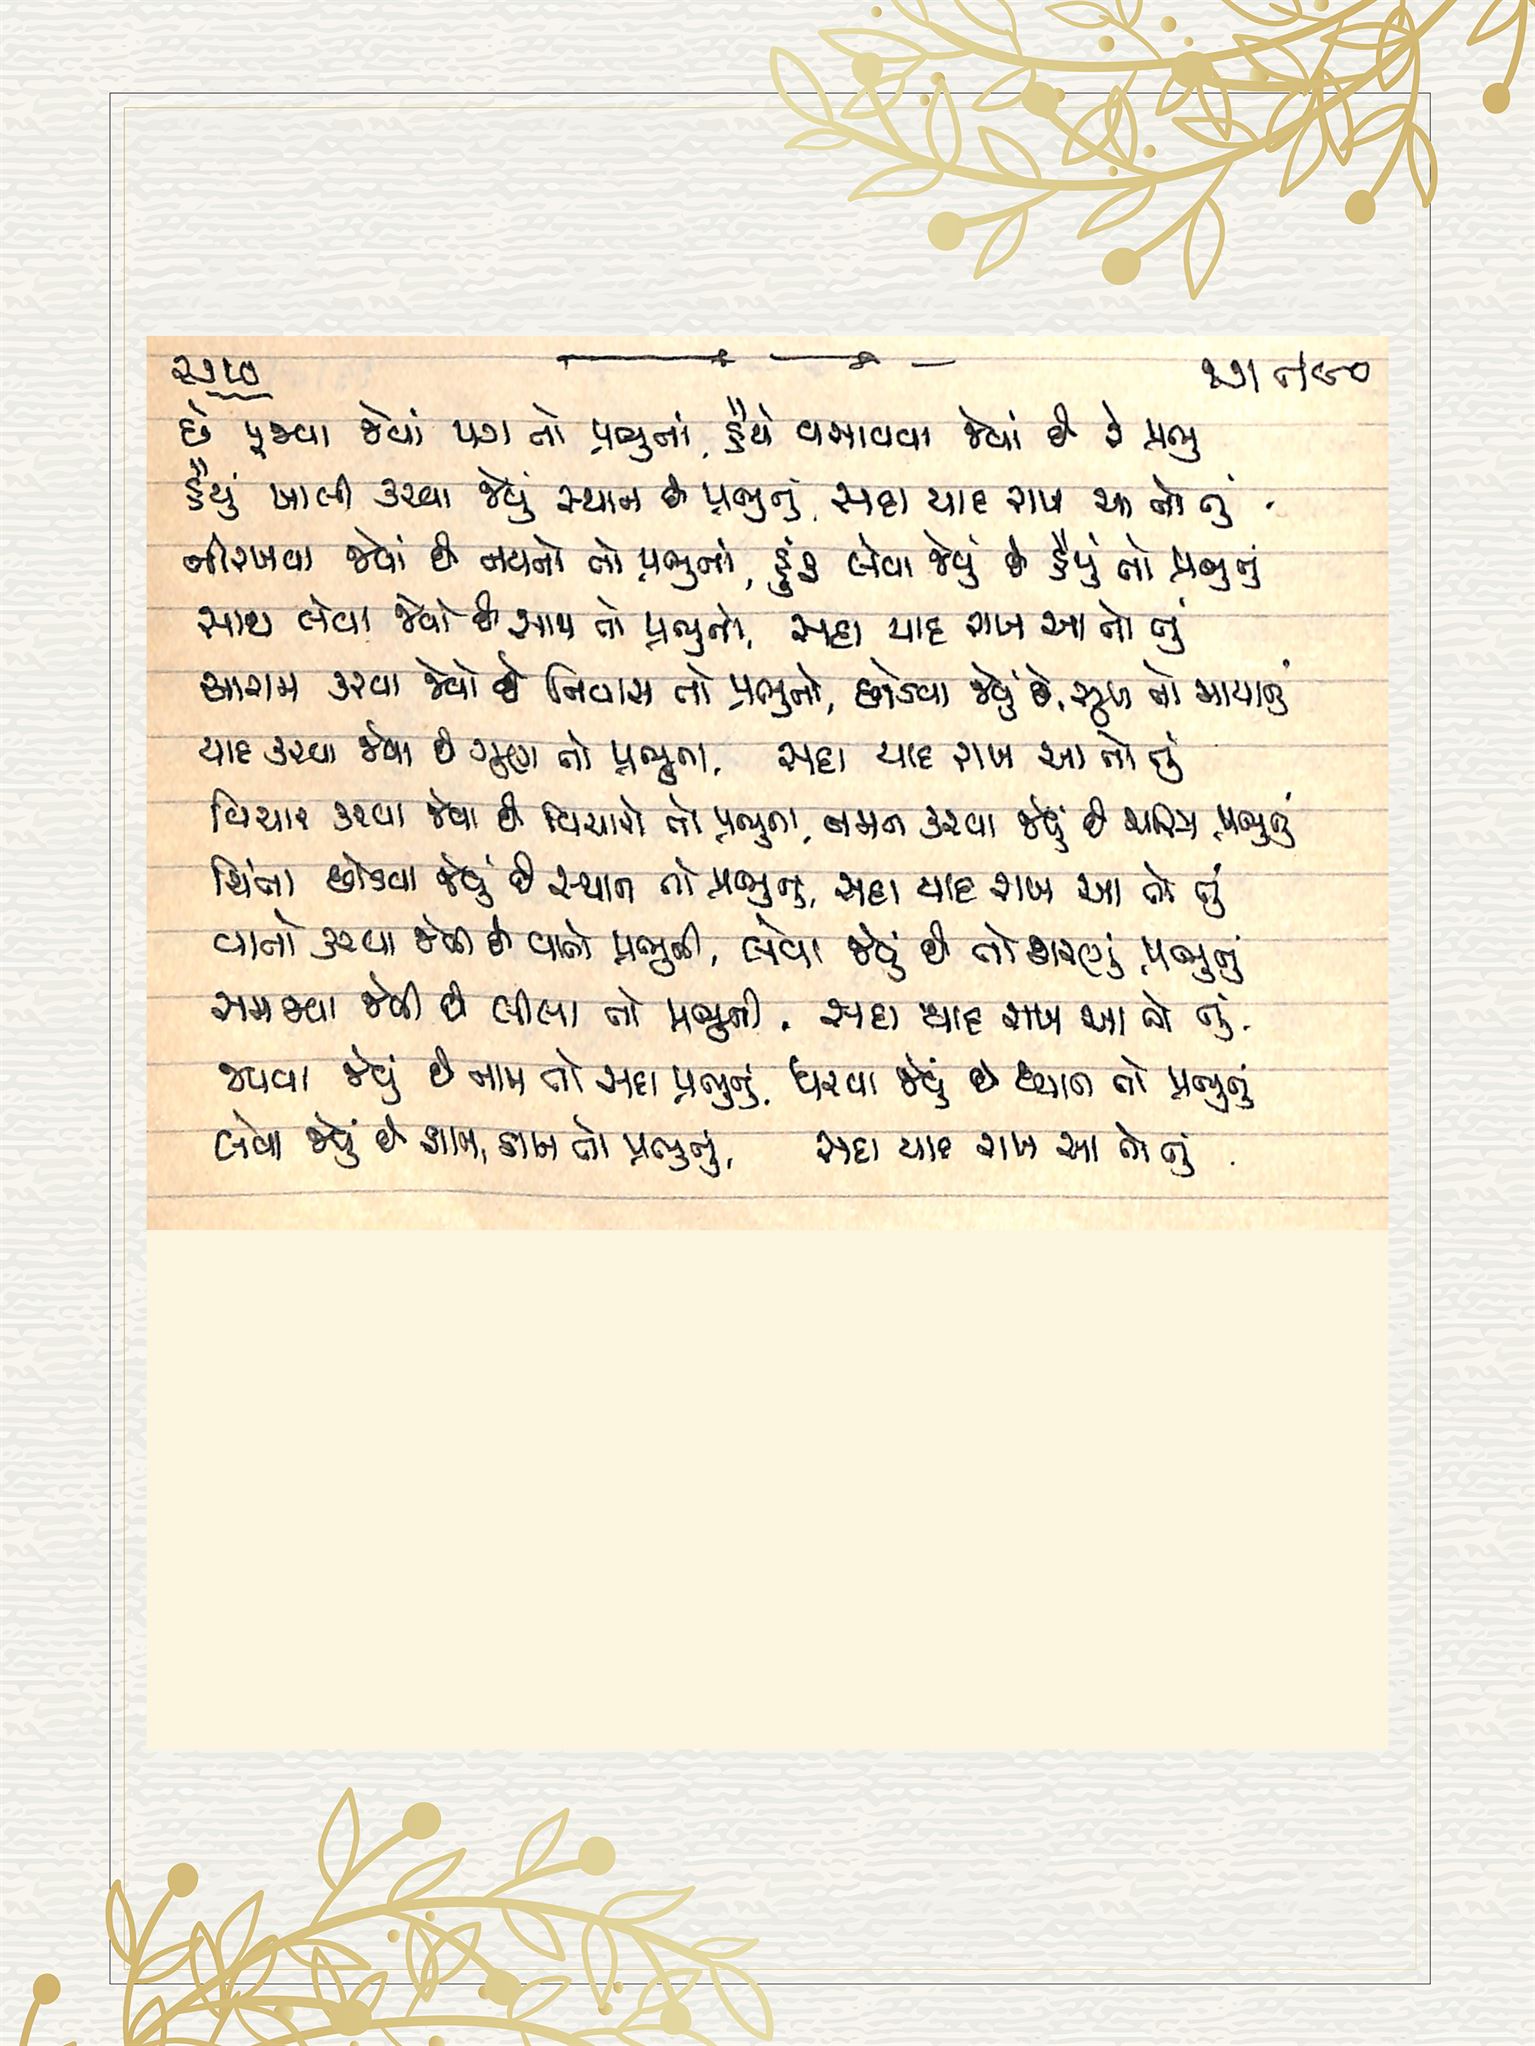 છે પૂજવા જેવાં પગ તો પ્રભુનાં, હૈયે વસાવવા જેવાં છે રે પ્રભુ
હૈયું ખાલી કરવા જેવું સ્થાન છે પ્રભુનું, સદા યાદ રાખ આ તો તું.
નીરખવા જેવાં છે નયનો તો પ્રભુનાં, હૂંફ લેવા જેવું છે હૈયું તો પ્રભુનું
સાથ લેવા જેવો છે સાથ તો પ્રભુનો, સદા યાદ રાખ આ તો તું
આરામ કરવા જેવો છે નિવાસ તો પ્રભુનો, છોડવા જેવું છે, સુખ તો માયાનું
યાદ કરવા જેવા છે ગુણો તો પ્રભુના, સદા યાદ રાખ આ તો તું
વિચાર કરવા જેવા છે વિચારો તો પ્રભુના, નમન કરવા જેવું છે ચરિત્ર પ્રભુનું
ચિંતા છોડવા જેવું છે સ્થાન તો પ્રભુનું, સદા યાદ રાખ આ તો તું
વાતો કરવા જેવી છે વાતો પ્રભુની, લેવા જેવું છે તો શરણું પ્રભુનું
સમજવા જેવી છે લીલા તો પ્રભુની. સદા યાદ રાખ આ તો તું.
જપવા જેવું છે નામ તો સદા પ્રભુનું, ધરવા જેવું છે ધ્યાન તો પ્રભુનું
લેવા જેવું છે કામ, કામ તો પ્રભુનું, સદા યાદ રાખ આ તો તું.